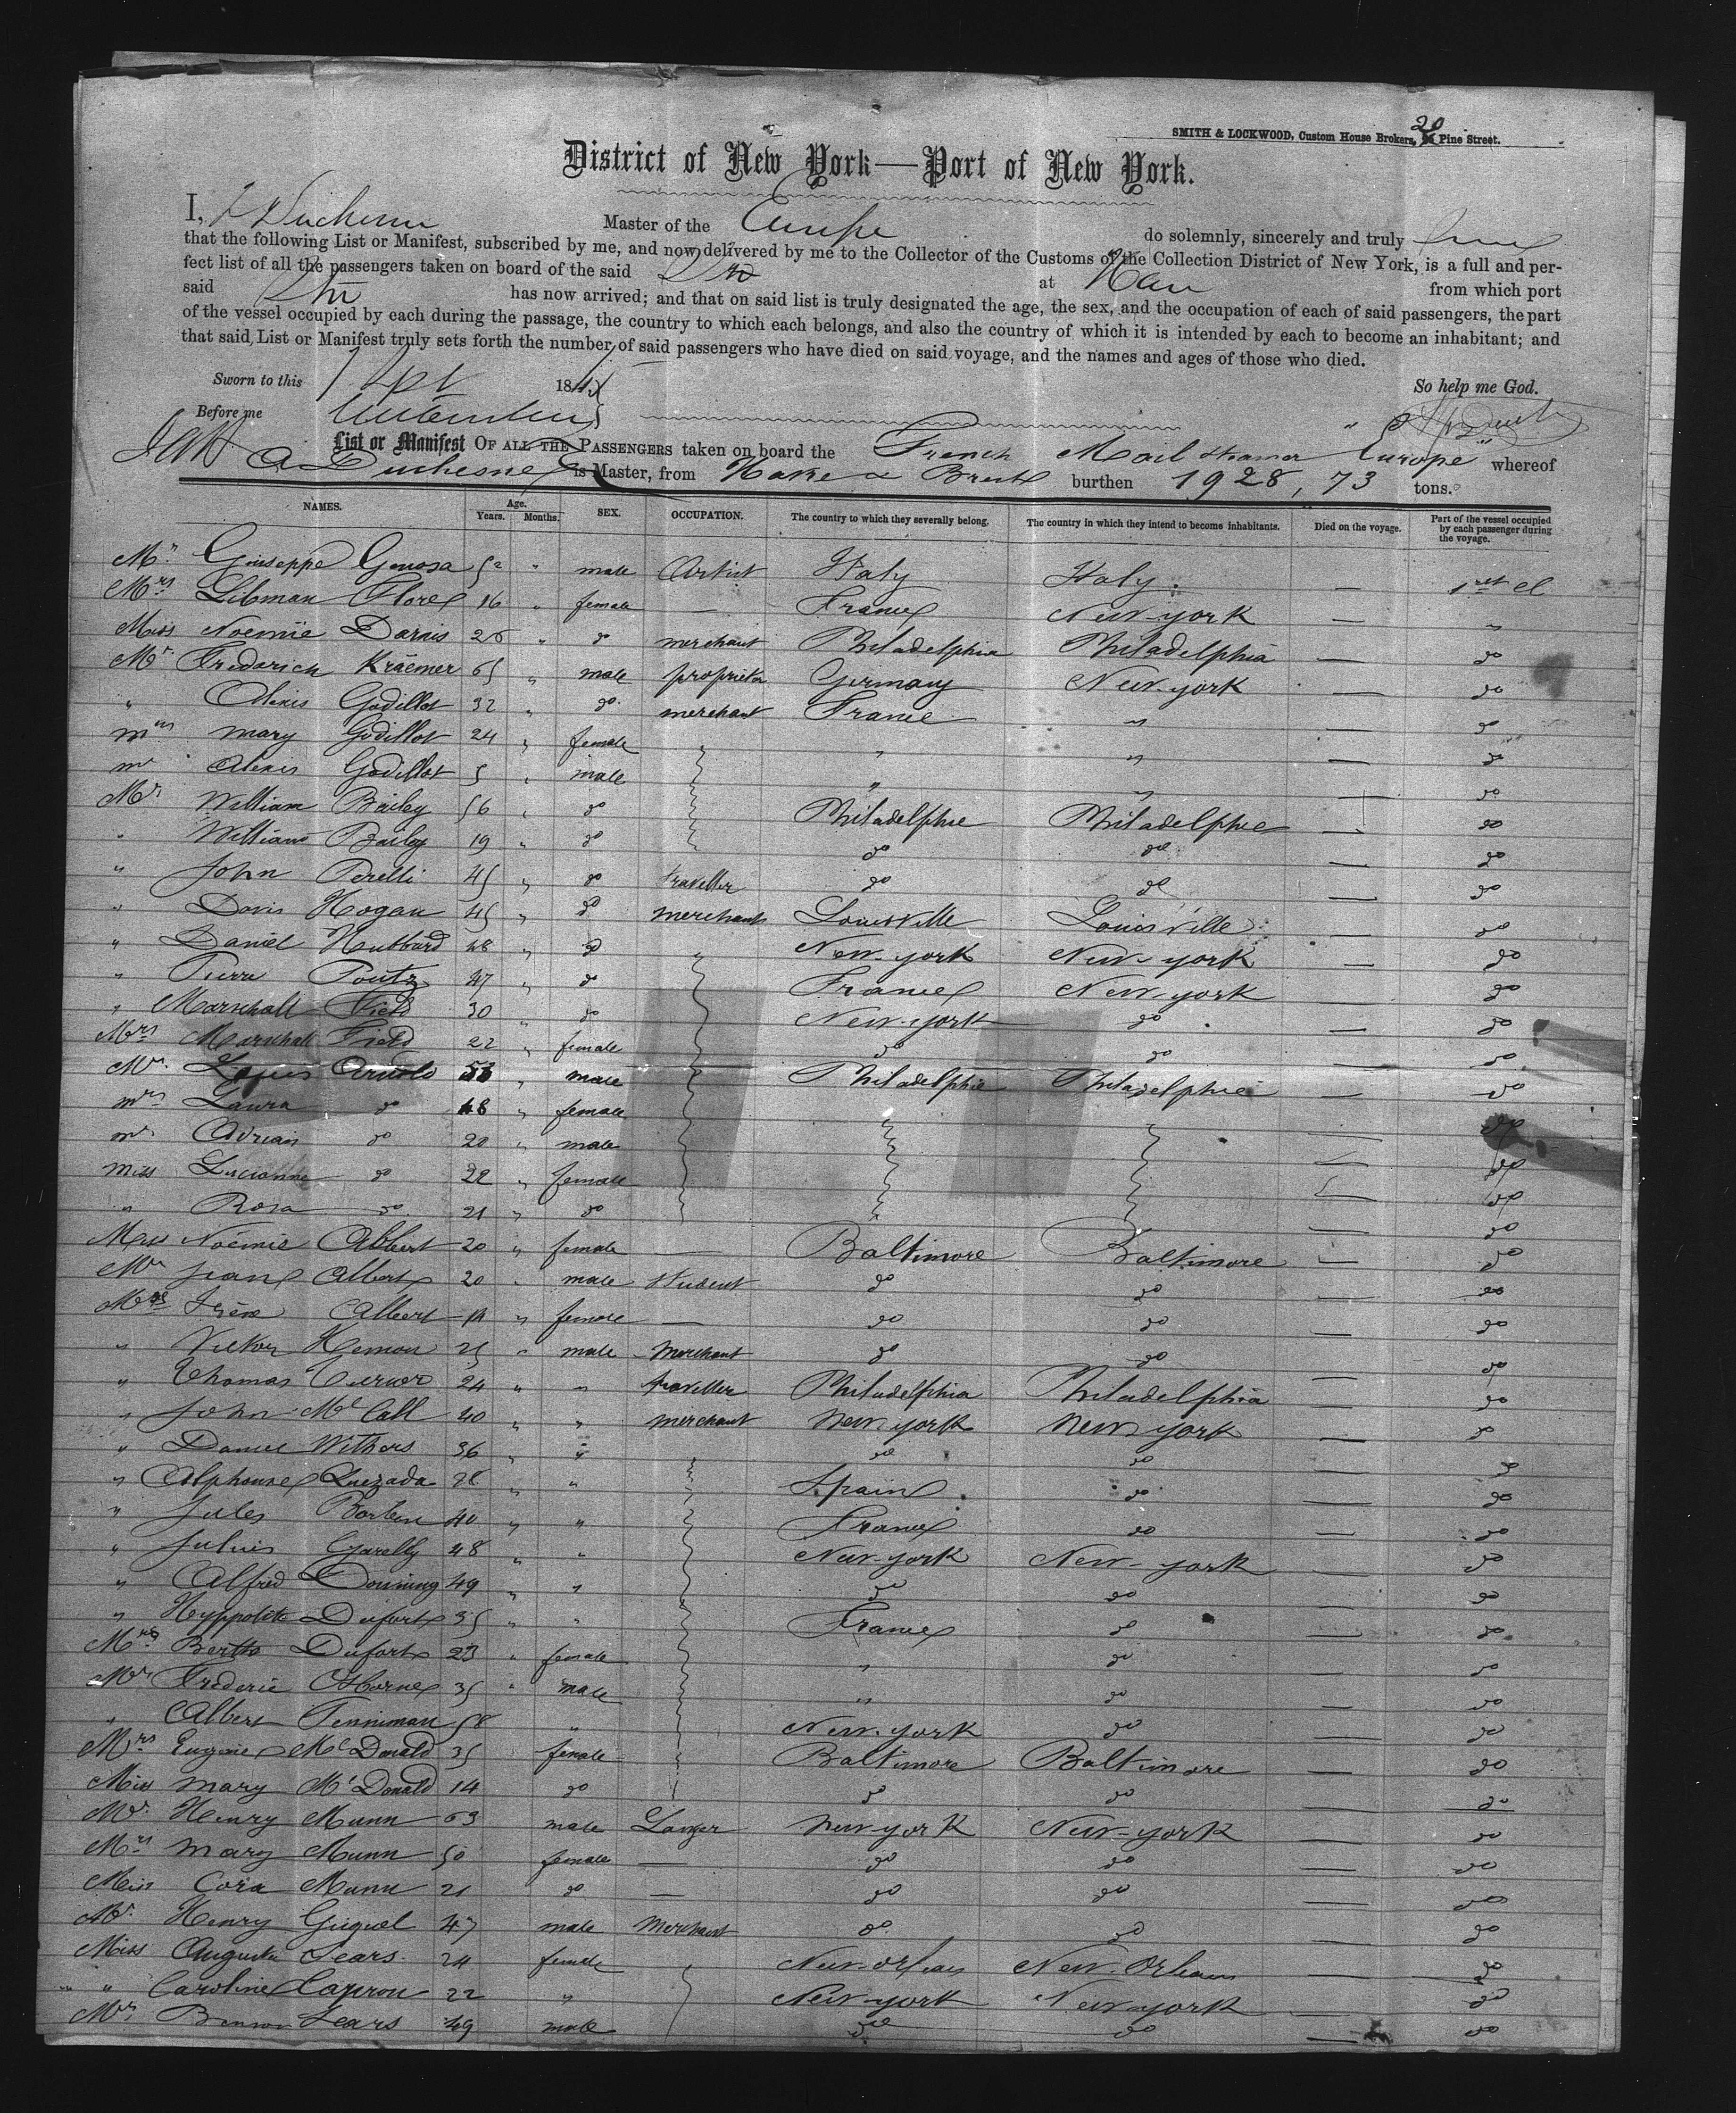 SMITH & LOCKWOOD, Custom House Brokers, 20 Pine Street.
District of New York—Port of New York.
I, Duchesne Master of the Europe do solemnly, sincerely and truly swear
that the following List or Manifest, subscribed by me, and now delivered by me to the Collector of the Customs of the Collection District of New York, is a full and per-
fect list of all the passengers taken on board of the said Str at Havre from which port
said Str has now arrived; and that on said list is truly designated the age, the sex, and the occupation of each of said passengers, the part
of the vessel occupied by each during the passage, the country to which each belongs, and also the country of which it is intended by each to become an inhabitant; and
that said List or Manifest truly sets forth the number of said passengers who have died on said voyage, and the names and ages of those who died.
Sworn to this 187 So help me God.
Before me
List or Manifest OF ALL THE PASSENGERS taken on board the French Mail steamer Europe whereof
A Duchesne is Master, from Havre & Brest burthen 1928,73 tons.
NAMES. Age. Years. Months. SEX. OCCUPATION. The country to which they severally belong. The country in which they intend to become inhabitants. Died on the voyage. Part of the vessel occupied by each passenger during the voyage.
Mr. Giuseppe 52 " male Artist Italy Italy — 1rst cl
Mrs Libman Flore 16 " female — France New-york — "
Miss Noemie Darnis 26 " do merchant Philadelphia Philadelphia — do
Mr Frederich Kräemer 65 " male proprietor Germany New-york — do
" Alexis Godillot 32 " do merchant France " — do
mrs mary Godillot 24 " female " " — do
mr Alexis Godillot 5 " male " " — do
Mr William Bailey 56 " do Philadelphie Philadelphie — do
" William Bailey 19 " do do do — do
" John Perelli 45 " do traveller do do — do
" Davis Hogan 45 " do merchant Louisville Louisville — do
" Daniel Hubbard 48 " do New-york New-york — do
" Pierre Poutz 47 " do France New-york — do
" Marschall Field 30 " do New-york do — do
Mrs Marschall Field 22 " female do do — do
Mr. Louis Arnold 53 " male Philadelphie Philadelphie — do
mrs Laura do 48 " female — do
mr Adrian do 20 " male — do
miss Lucianne do 22 " female — do
" Rosa do 21 " do — do
Miss Noémie Albert 20 " female — Baltimore Baltimore — do
Mr Jean Albert 20 " male student do do — do
Irène Albert " female — do do — do
" Victor Hemon 25 " male Merchant do do — do
" Thomas 24 " " traveller Philadelphia Philadelphia — do
" John Mc Call 40 " " merchant New york New york — do
" Daniel Withers 36 " " do do — do
" Alphonse Quezada 28 " " Spain do — do
" Jules 40 " " France do — do
" Julius 48 " " New-york New-york — do
" Alfred 49 " " do do — do
" Hyppolite Dufort 35 " " France do — do
Mrs Berthe Dufort 23 " female " do — do
Mr Frederic 35 " male " do — do
" Albert Tenniman 58 " New-york do — do
Mrs Eugenie McDonald 35 female Baltimore Baltimore — do
Miss Mary McDonald 14 do do do — do
Mr. Henry Munn 63 male New york New-york — do
Mrs Mary Munn 50 female — do do — do
Miss Cora Munn 21 do — do do — do
Mr. Henry 47 male Merchant do do — do
Miss Augusta Sears 24 female New-Orleans New-Orleans — do
" Caroline 22 " New-york New-york — do
Mr Sears 49 male do do — do